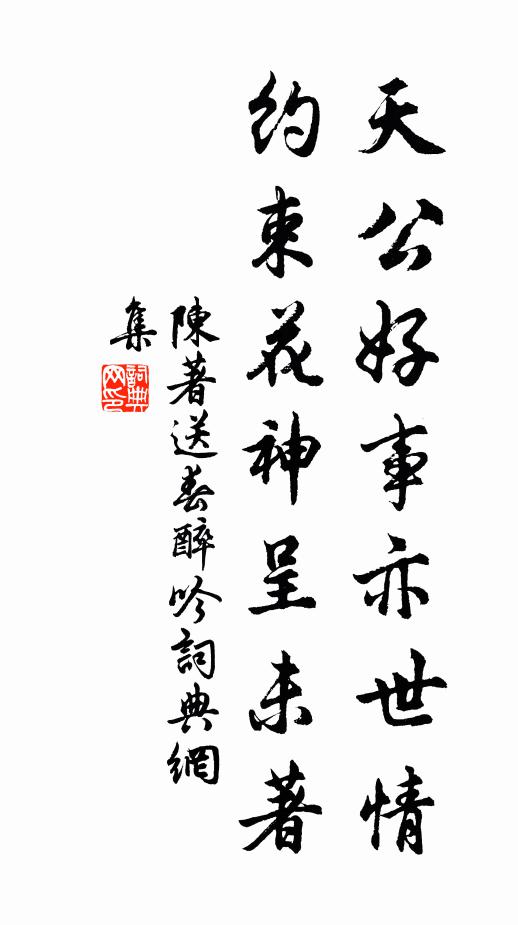 天公好事亦世情
約束花神呈未著
陳著送春醉吟詞典網
集
詞典
网印